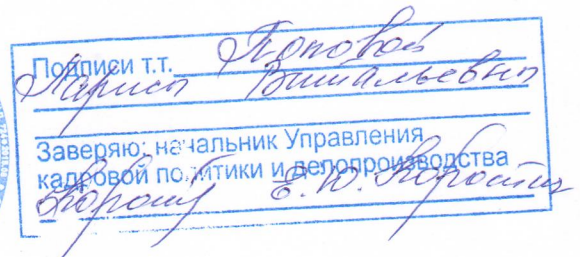 Подписи т.т. Поповой
Ларисы Витальевны
Заверяю: начальник Управления
кадровой политики и делопроизводства
Е.Ю. Коростик